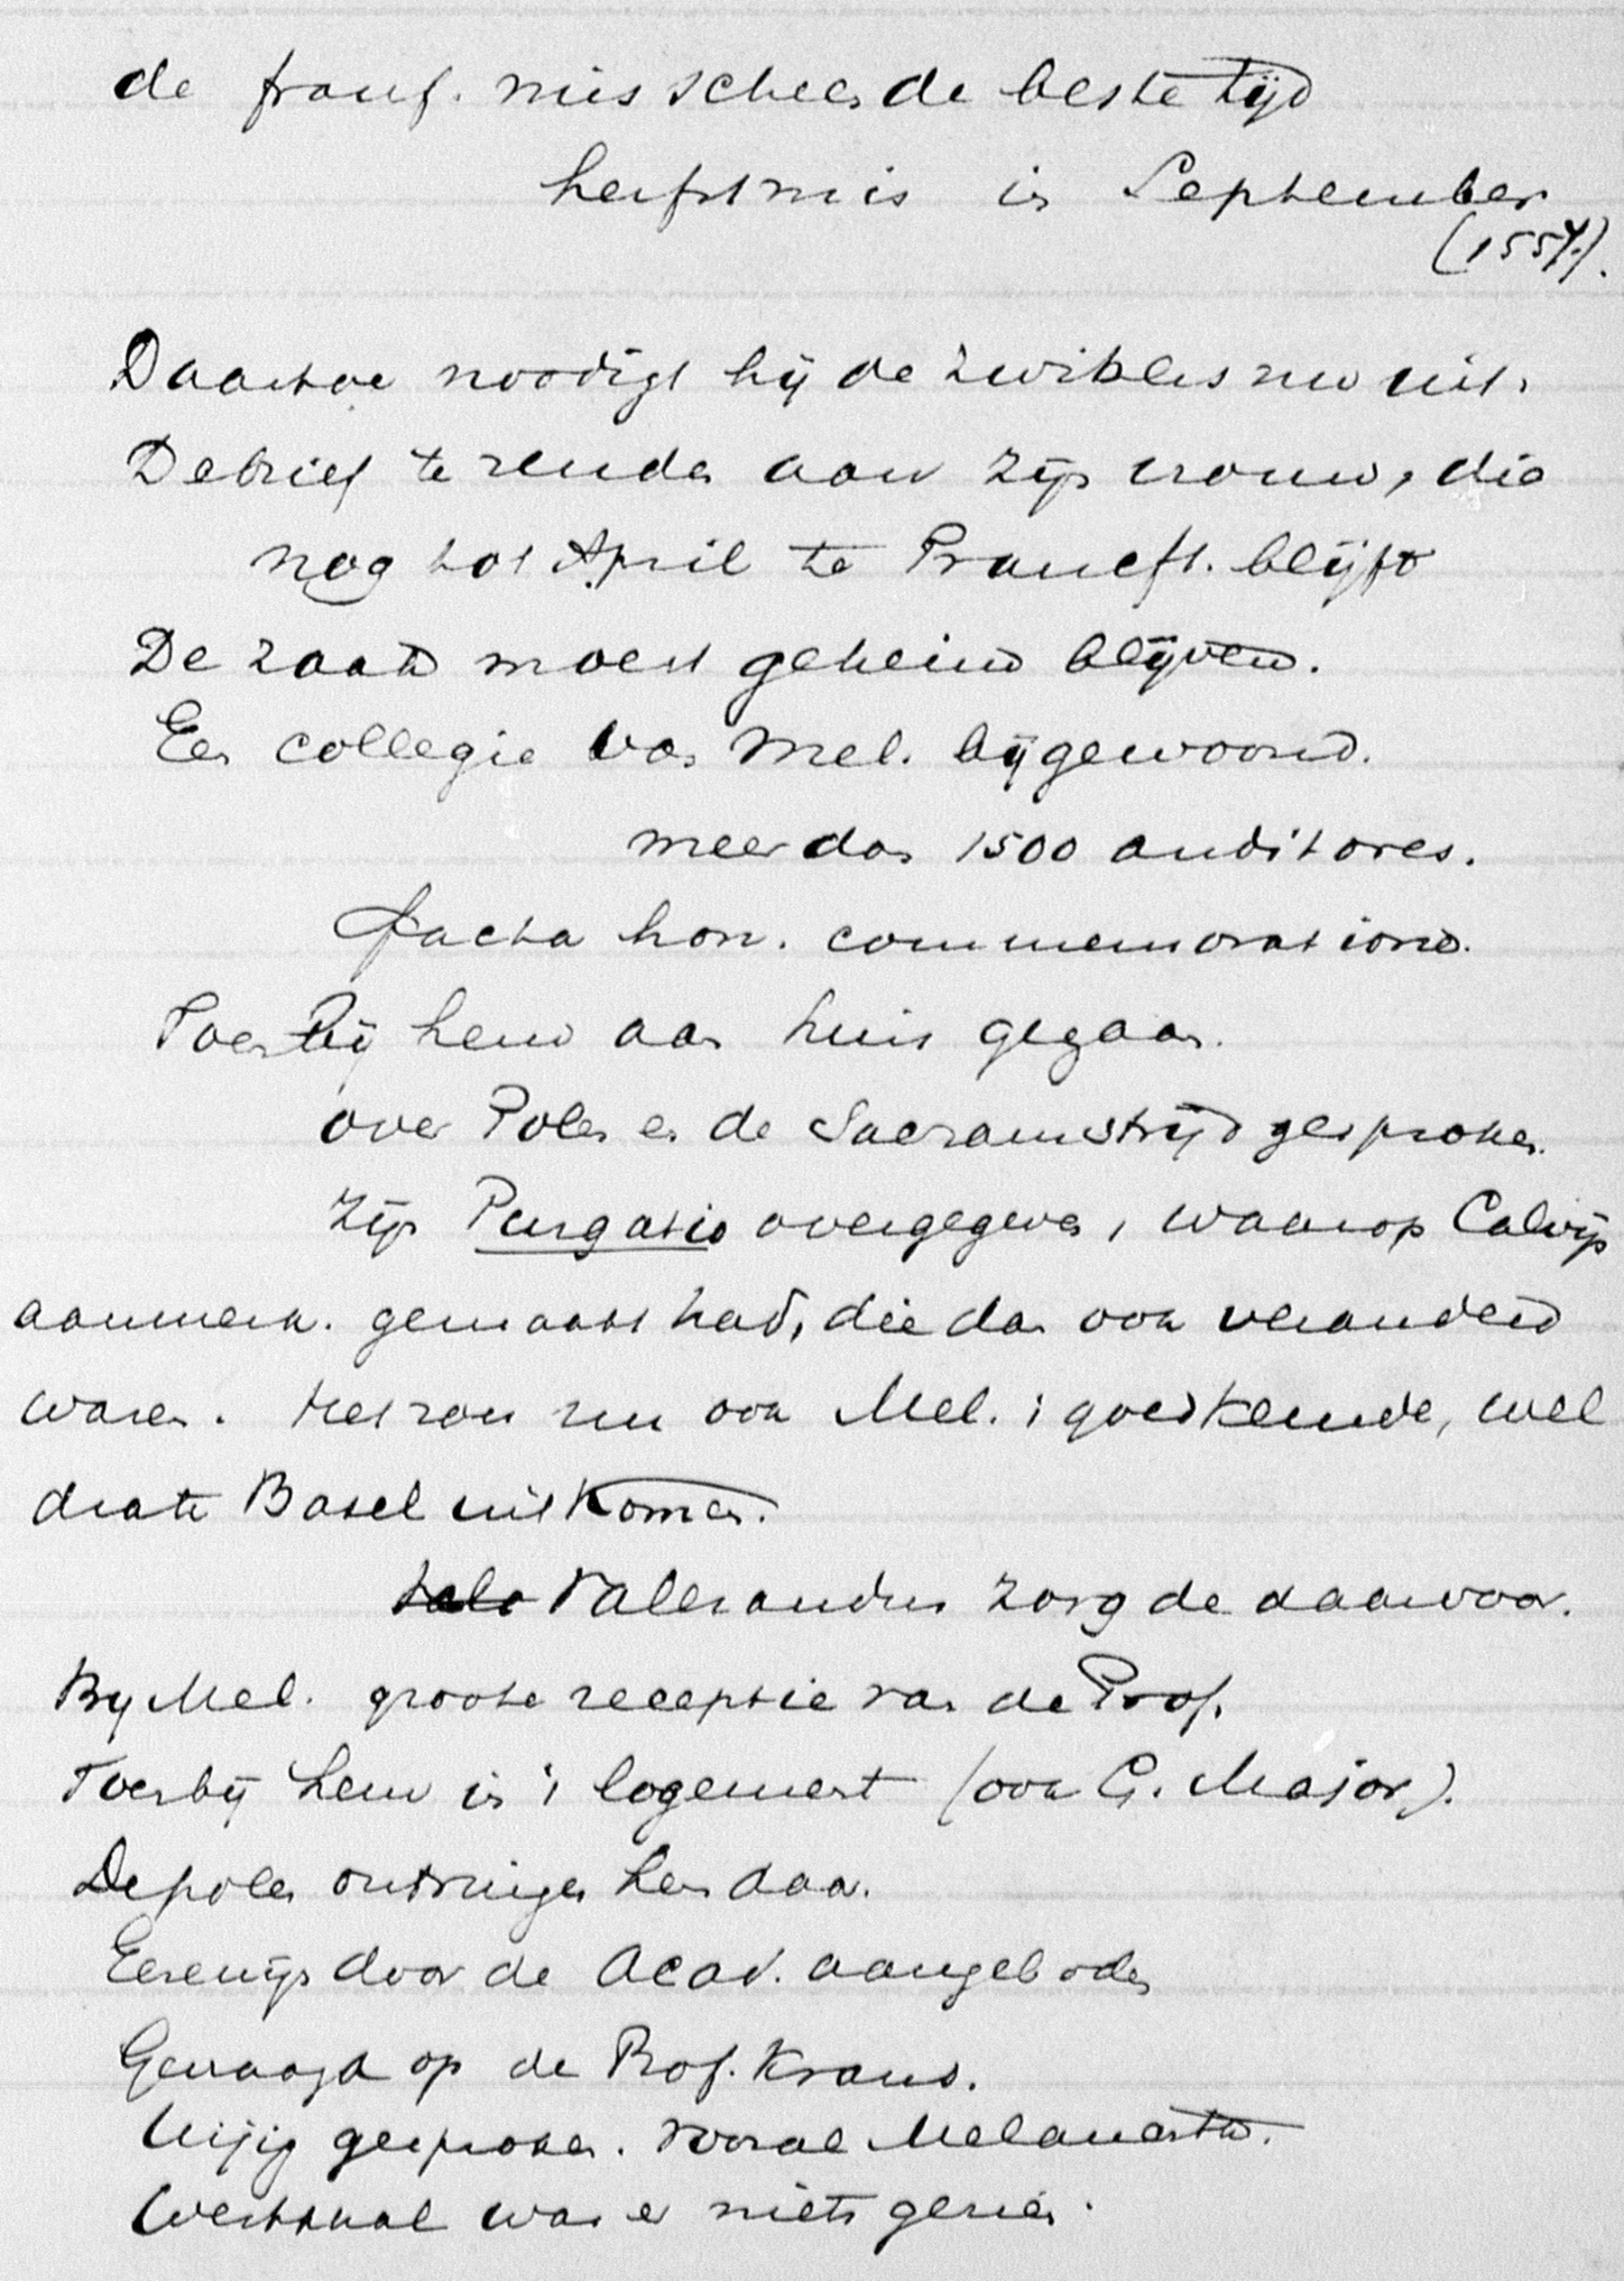 de franf. mis scheen de beste tijd
herfstmis in September
(1557).
Daartoe noodigt hij de Zwitsers nu uit.
De brief te zenden aan zijn vrouw, die
nog tot April te Francft. blijft
De zaak moest geheim blijven.
Een collegie van Mel. bijgewoond.
meer dan 1500 auditores.
facta hon. commemoratione.
Toen bij hem aan huis gegaan.
over Polen en de Sacramstrijd gesproken.
Zijn Purgatio overgegeven, waarop Calvijn
aanmerk. gemaakt had, die dan ook veranderd
waren. Het zou nu ook Mel. 't goedkeurde, wel
dra te Basel uitkomen.
Alexander zorgde daarvoor.
By Mel. groote receptie van de Prof.
Toen bij hem in 't logement (ook G. Major).
De polen ontvingen hen daar.
Eerewijn door de Acad. aangeboden
Gevraagd op de Prof. Krans.
gesproken. vooral Melanchth.
was er niets gezien.